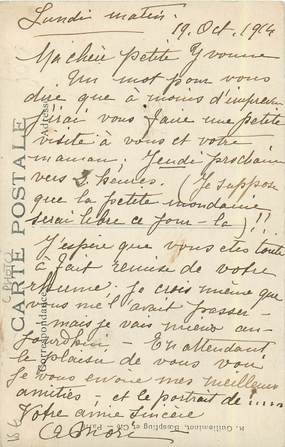 Lundi matin.
19. Oct. 1914
Ma chère petite Yvonne
Un mot pour vous
dire que à moins d'imprévu
j'irai vous faire une petite
visite à vous et votre
maman. Jeudi prochain
vers 2 heures. (Je suppose
que la petite mondaine
serai libre ce jour-la)!!
J'espère que vous etes toute
à fait remise de votre
rhume. Je crois même que
vous me l'avait passer –
– mais je vais mieux au-
jourd'hui – En attendant
le plaisir de vous voir
Je vous envoie mes meilleurs
amitiés, et le portrait de .....
Votre amie sincère
CARTE POSTALE
Correspondance
Adresse